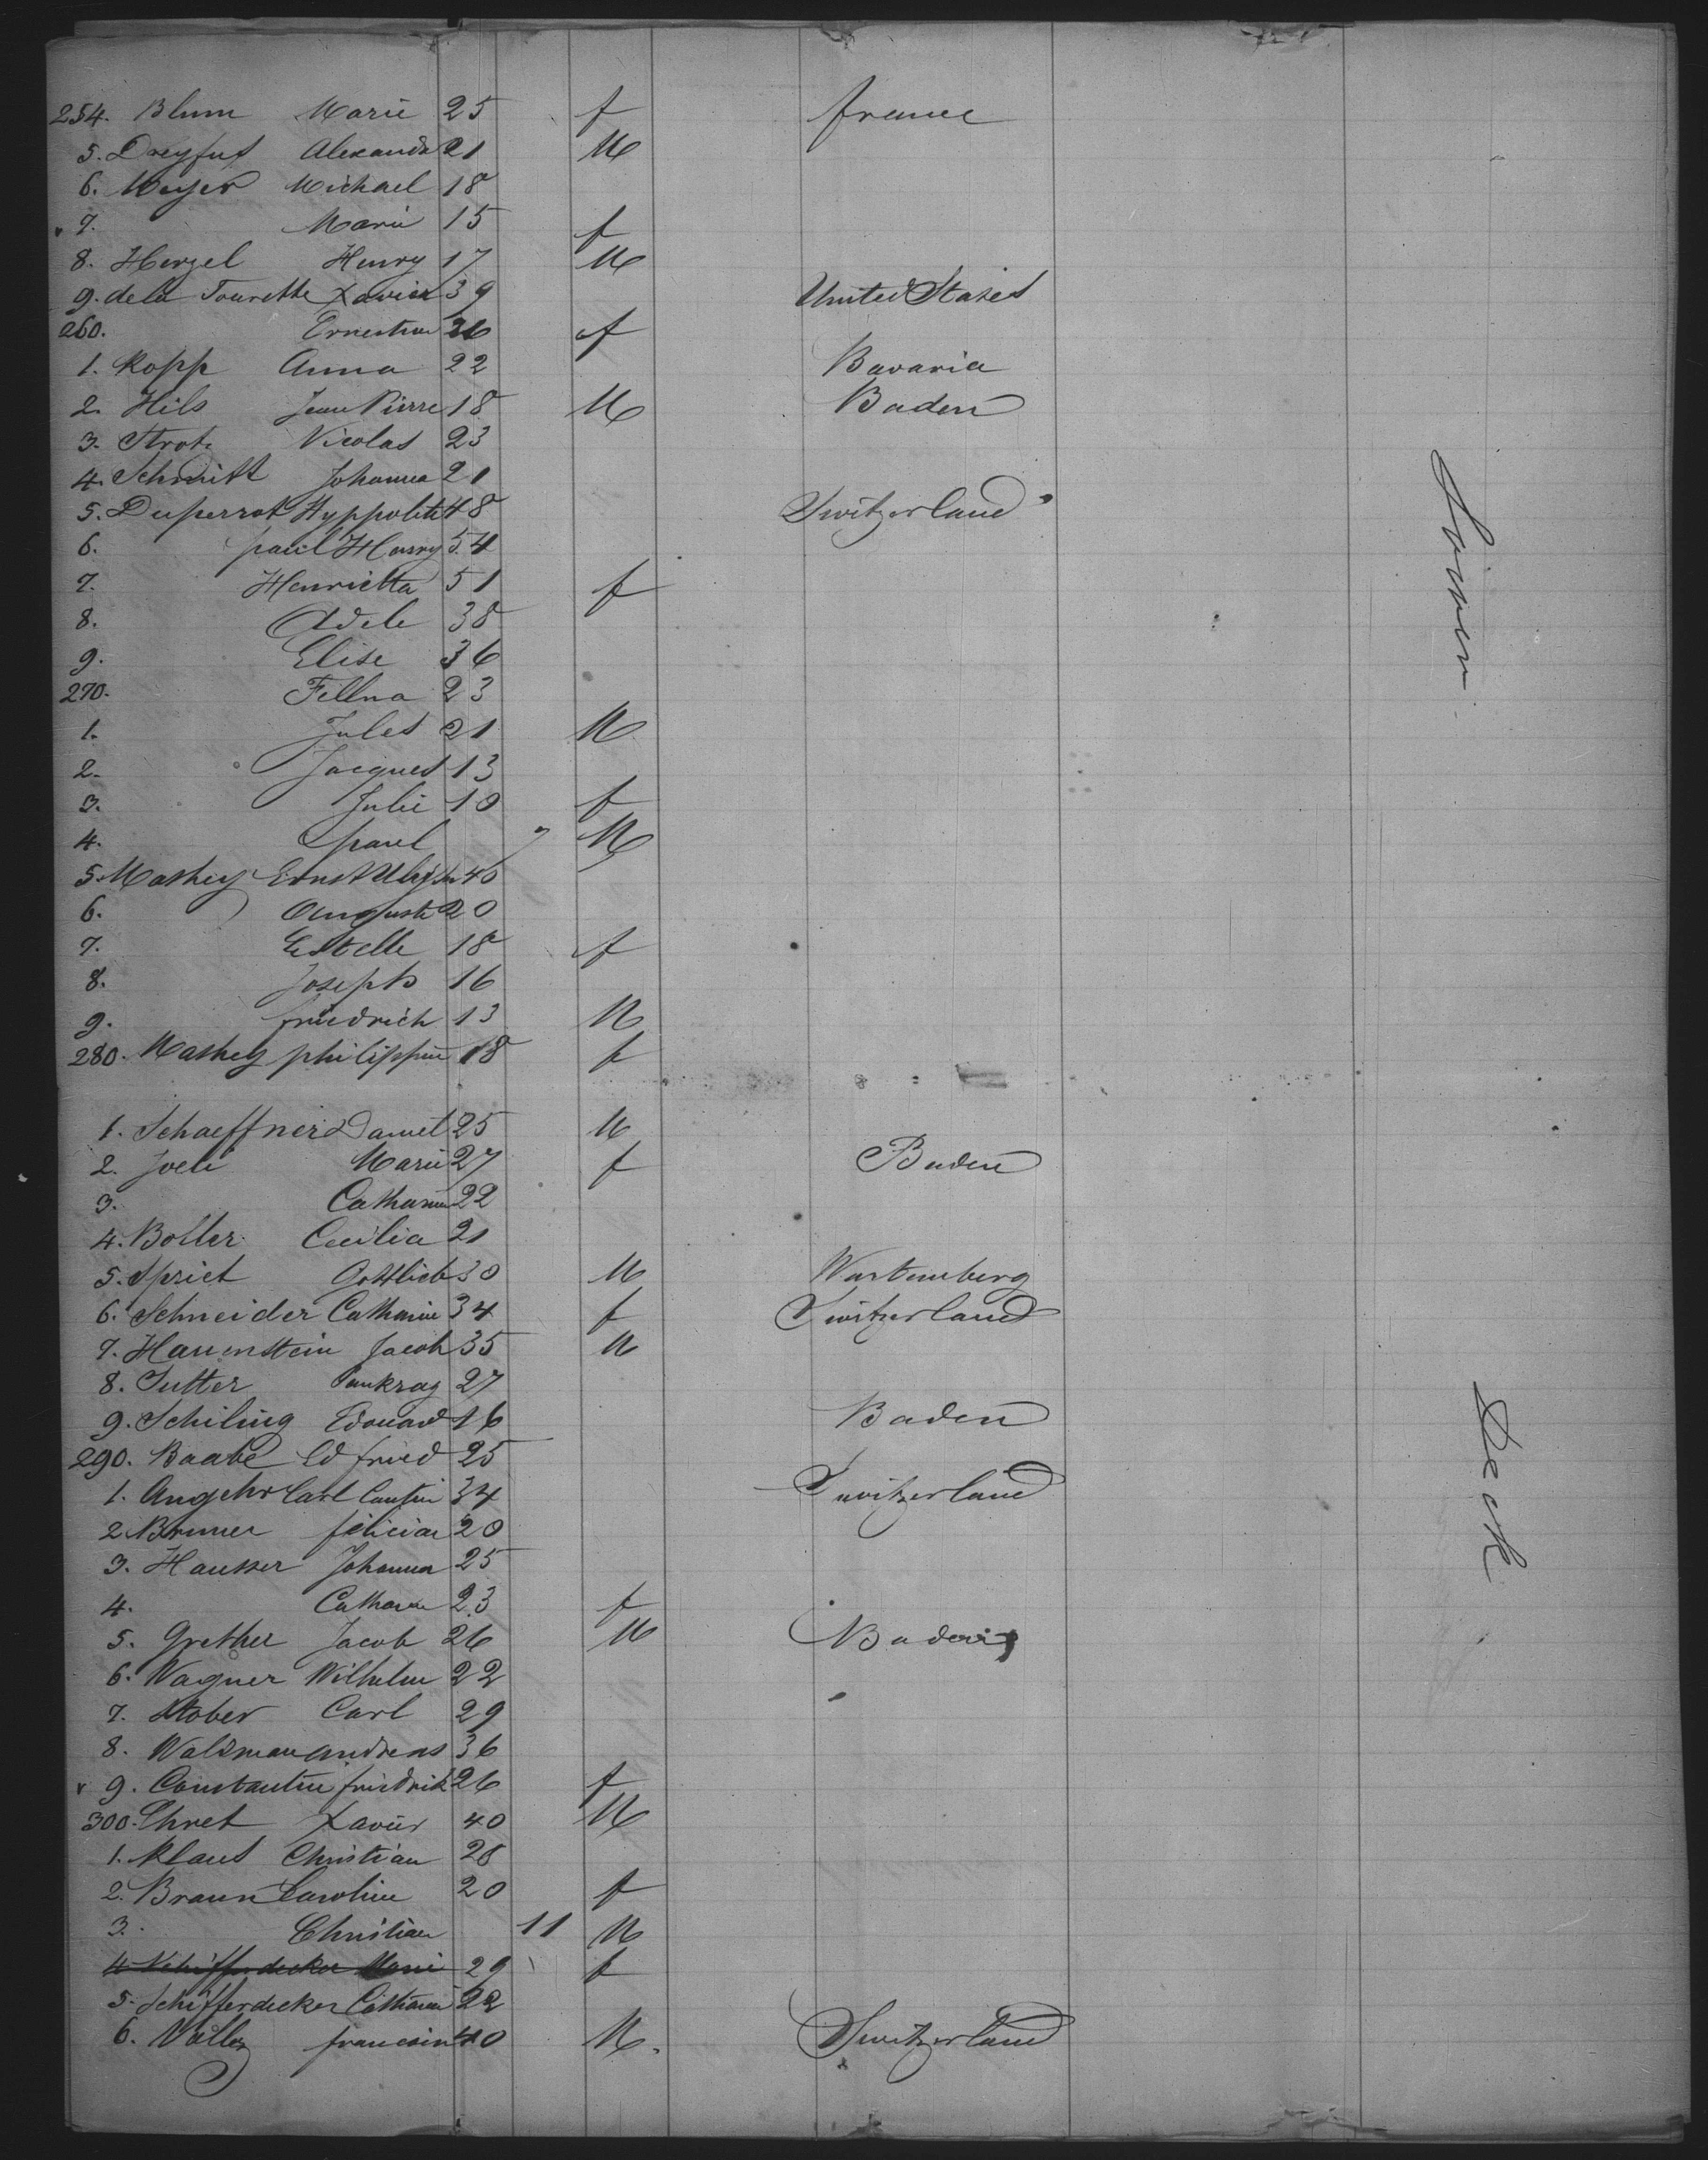 254. Blum Marie 25 f france
5. Dreyfus Alexandr 21 M
6. Meyer Michael 18
7. Marie 15 f
8. Herzel Henry 17 M
9. de la Tourette Xavier 39 United States
260. Ernestine 26 f
1. Kopp Anna 22 Bavaria
2. Hils Jean Pierre 18 M Baden
3. Strotz Nicolas 23
4. Schmitt Johannes 21
5. Duperrot Hyppolite 48 Switzerland
6. paul Henry 54
7. Henrietta 51 f
8. Adele 38
9. Elise 36
270. Fellna 23
1. Jules 21 M
2. Jacques 13
3. Julie 10 f
4. paul 7 M
5. Mathey Ernst 40
6. Auguste 20
7. Estelle 18 f
8. Joseph 16
9. friedrich 13 M
280. Mathey philippine 18 f
1. Schaeffner Daniel 25 M
2. Joeli Marie 27 f Baden
3. Catharine 22
4. Boller Cecilia 21
5. Spriet Gottlieb 30 M Wurtemberg
6. Schneider Catharine 34 f Switzerland
7. Hauenstein Jacob 35 M
8. Sutter Pankraz 27
9. Schiling Edouard 16 Baden
290. Baabe Ed fried 25
1. Angehr Carl 34 Switzerland
2. Bruner felician 20
3. Hausser Johannes 25
4. Catharine 23 f
5. Grether Jacob 26 M Baden
6. Wagner Wilhelm 22
7. Stober Carl 29
8. Walzman andreas 36
9. Constantin friedrich 26 f
300. Ehret Xavier 40 M
1. Klaus Christian 28
2. Braun Caroline 20 f
3. Christian 11 M
4 Schifferdecker Marie 29 f
5. Schifferdecker Catharine 22
6. 40 M. Switzerland
Lower
Deck